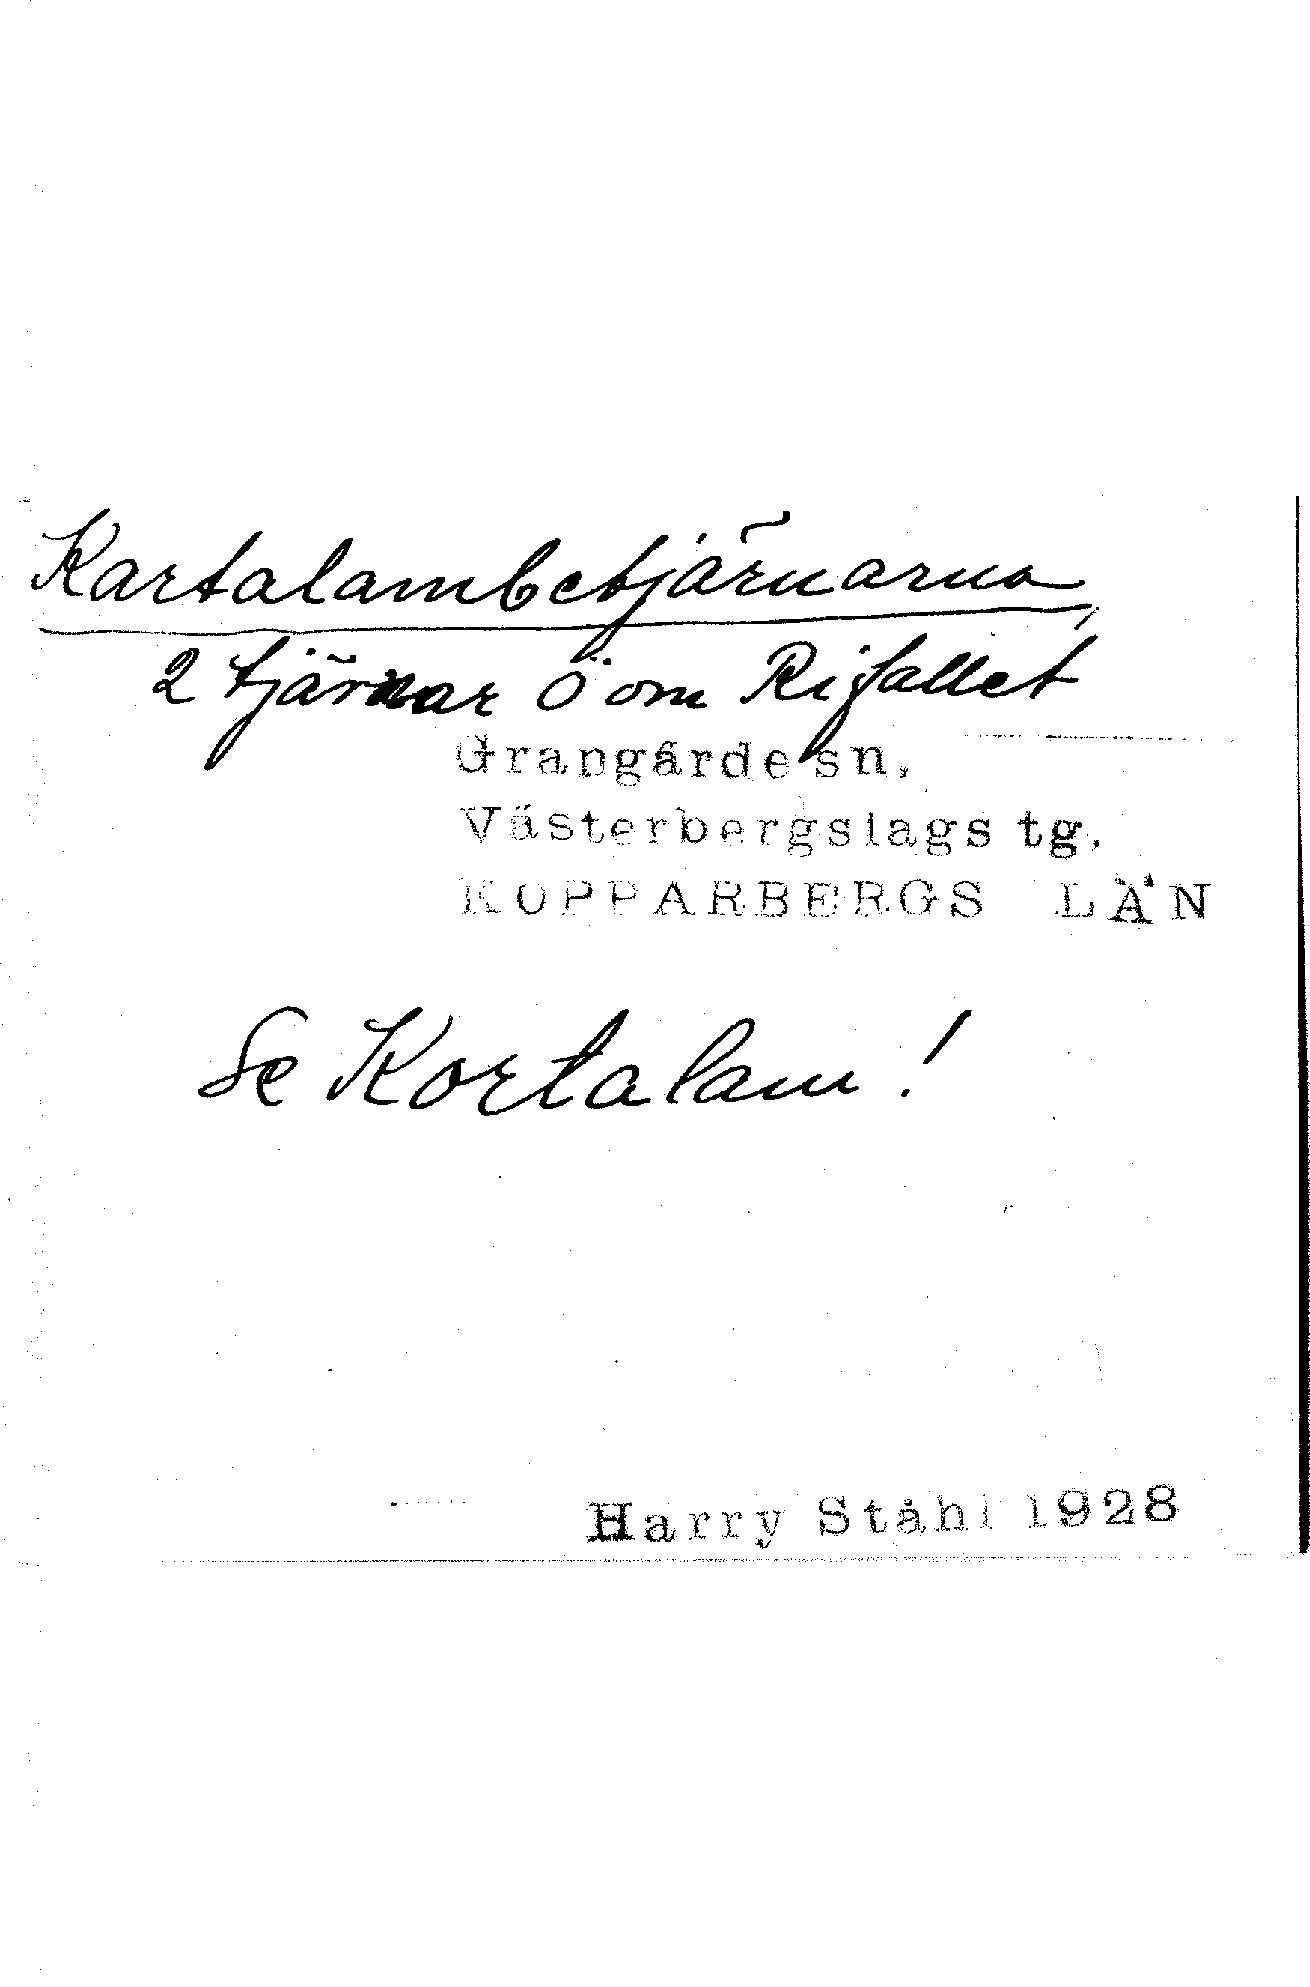 Kartalambetjärnarna
2 tjärnar Ö om Rifallet
Grangärde sn.
Västerbergslags tg.
KOPPARBERGS LÄN
Se Kortalam!
Harry Ståhl 1928